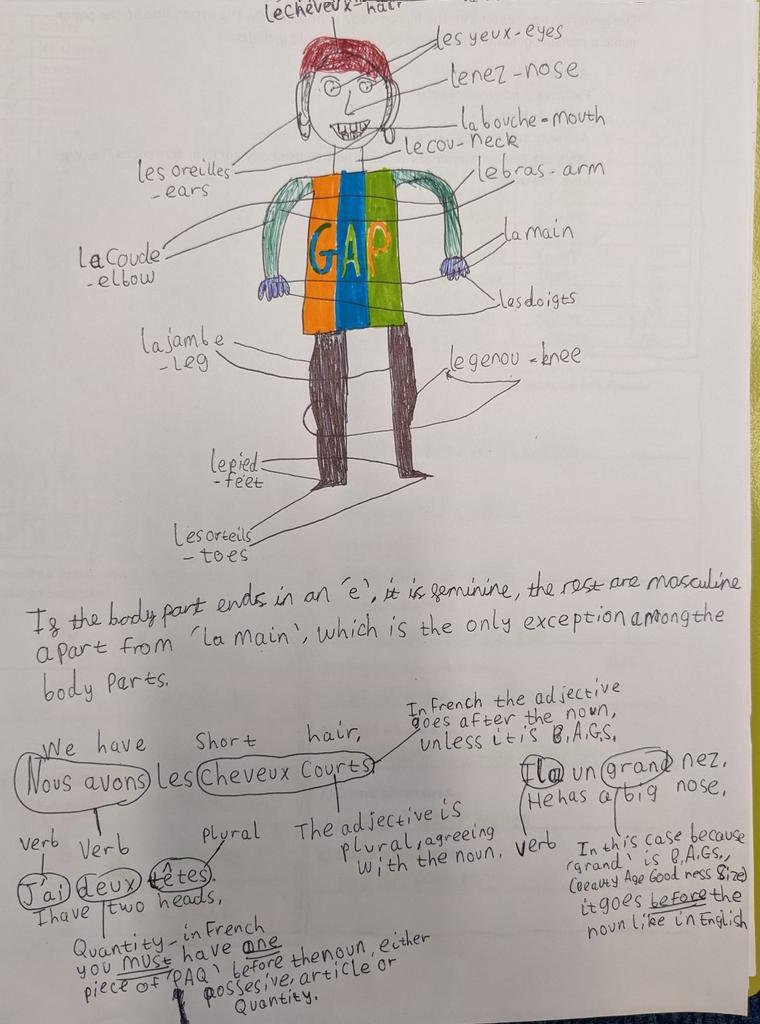 le cheveux-hair
les yeux-eyes
le nez-nose
la bouche-mouth
le cou-neck
les oreilles
-ears
le bras-arm
la main
La Coude
-elbow
GAP
les doigts
la jambe
-leg
le genou-knee
le pied
-feet
Les orteils
-toes
If the body part ends in an 'e', it is feminine, the rest are masculine
apart from 'la main', which is the only exception among the
body parts.
We have short hair.
Nous avons les cheveux courts
In French the adjective
goes after the noun,
unless it is B.A.G.S.
Il a un grand nez.
He has a big nose.
verb
Verb
plural
The adjective is
plural, agreeing
with the noun.
verb
In this case because
'grand' is B.A.G.S.,
(Beauty Age Goodness Size)
it goes before the
noun like in English
J'ai deux têtes.
I have two heads.
Quantity - in French
you must have one
piece of 'PAQ' before the noun, either
possesive, article or
Quantity.